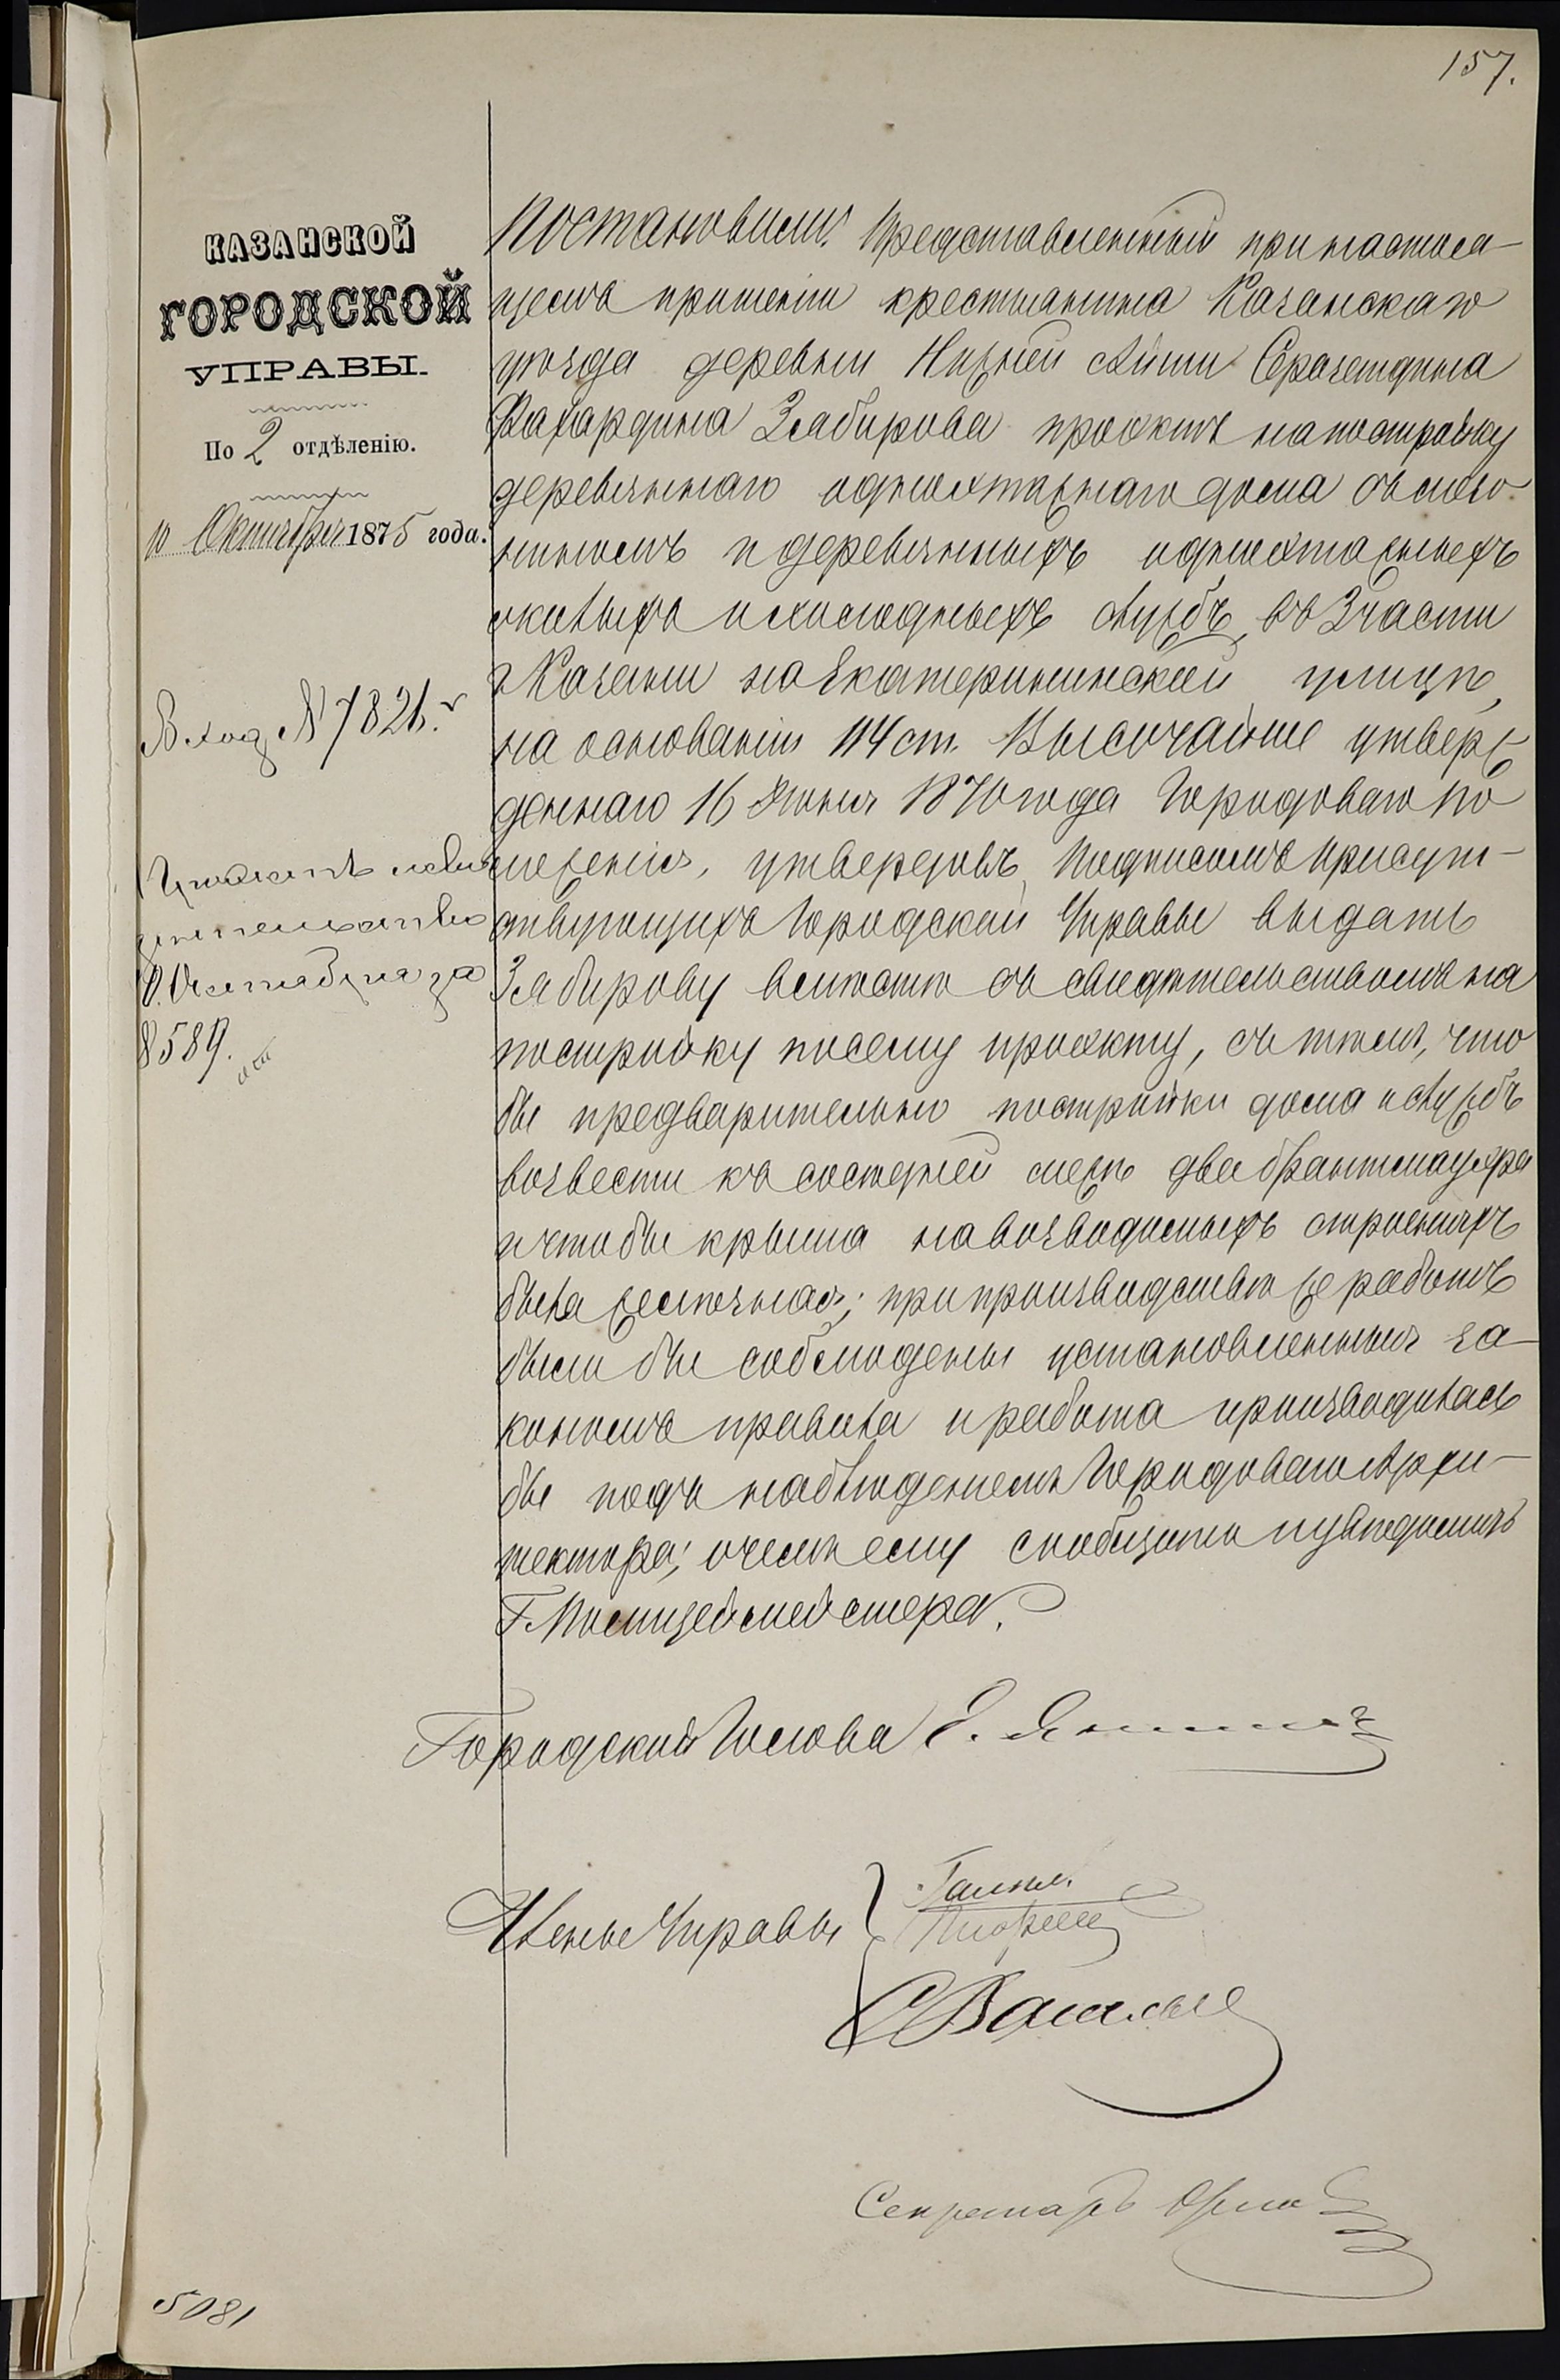 157.
КАЗАНСКОЙ
ГОРОДСКОЙ
УПРАВЫ.
По 2 отдѣленію.
10 Октября 1875 года.
Вход. № 7821.
8589.
Постановили: Представленный при настоя-
щемъ прошеніи крестьянина Казанскаго
уѣзда деревни Нижней Айши Серазетдина
Фахардина Зябирова проэктъ на постройку
деревяннаго одноэтажнаго дома съ мезо-
ниномъ и деревянныхъ одноэтажныхъ
жилыхъ и холодныхъ службъ, въ 3 части
г. Казани на Екатерининской улицѣ,
на основаніи 114 ст. Высочайше утверж-
деннаго 16 Іюня 1870 года Городоваго По
ложенія, утвердивъ подписомъ присут-
ствующихъ Городской Управы выдать
Зябирову вмѣстѣ съ свидѣтельствомъ на
постройку по сему проэкту, съ тѣмъ, что
бы предварительно постройки дома и службъ
возвести къ сосѣдней межѣ два брантмауера
и чтобы крыша на возводимыхъ строеніяхъ
была желѣзная; при производствѣ же работъ
были бы соблюдены установленныя за-
кономъ правила и работа производилась
бы подъ наблюденіемъ Городоваго Архи-
тектора; о чемъ ему сообщить и увѣдомить
Г. Полицеймейстера.
Городской Голова Э. Янишевскій
Члены Управы
Секретарь
5081